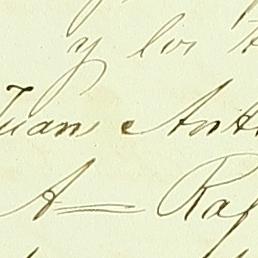 y los
Juan Ant
A— Raf